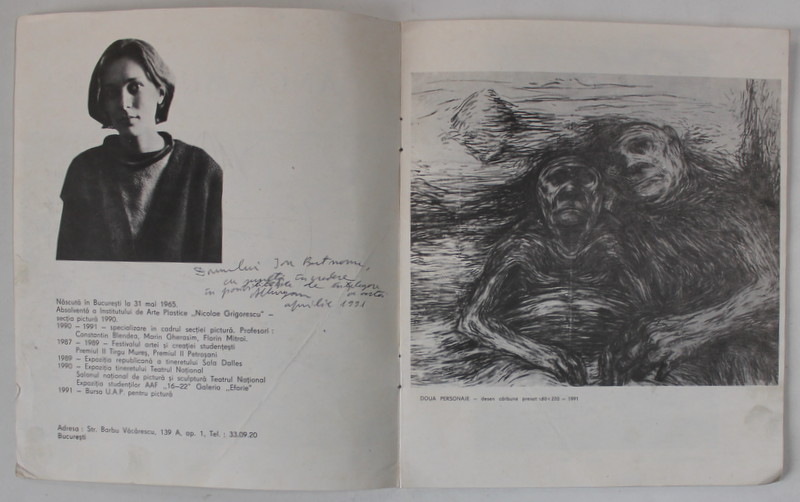 Domnului Ion
cu
în posibilitățile de
aprilie 1991
Născută în București la 31 mai 1965.
Absolventă a Institutului de Arte Plastice „Nicolae Grigorescu" –
secția pictură 1990.
1990 – 1991 – specializare în cadrul secției pictură. Profesori :
Constantin Blendea, Marin Gherasim, Florin Mitroi.
1987 – 1989 – Festivalul artei și creației studențești
Premiul II Tîrgu Mureș, Premiul II Petroșani
1989 – Expoziția republicană a tineretului Sala Dalles
1990 – Expoziția tineretului Teatrul Național
Salonul național de pictură și sculptură Teatrul Național
Expoziția studenților AAF „16–22" Galeria „Eforie"
1991 – Bursa U.A.P. pentru pictură
Adresa : Str. Barbu Văcărescu, 139 A, ap. 1, Tel. : 33.09.20
București
DOUĂ PERSONAJE – desen cărbune presat – 1991